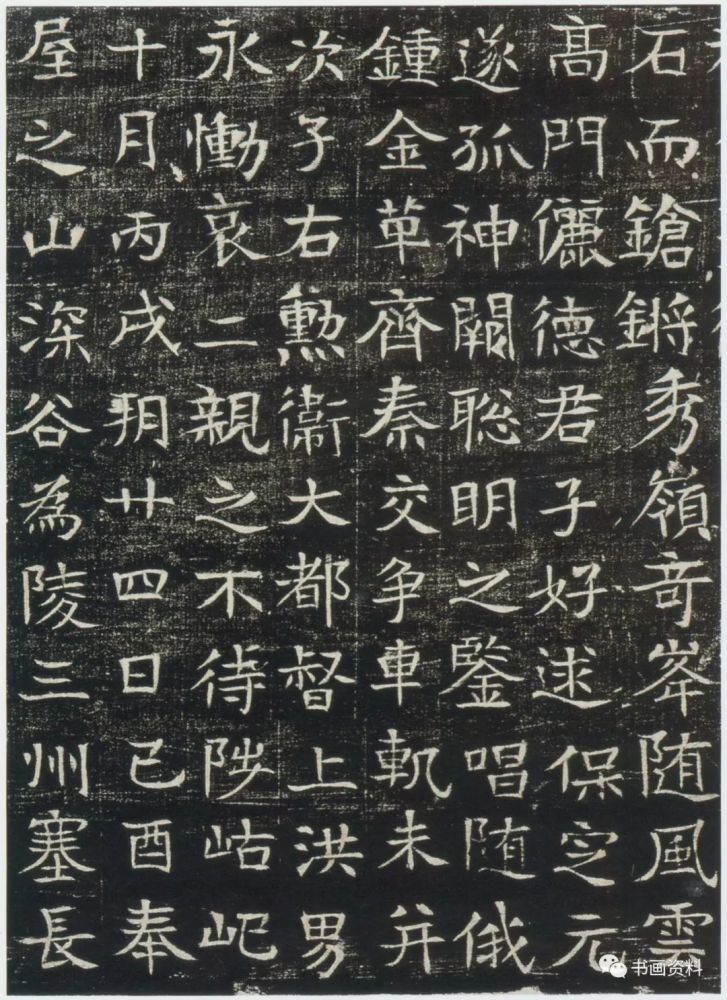 石而鎗鏘秀嶺竒峯随風雲
高門儷德君子好逑保定元
遂孤神闕聡明之鑒唱随俄
鍾金革齊秦交争車軌未并
次子右勲衞大都督上洪男
永慟哀二親之不待陟岵屺
十月丙戌朔廿四日己酉奉
屋之山深谷為陵三州塞長
书画资料